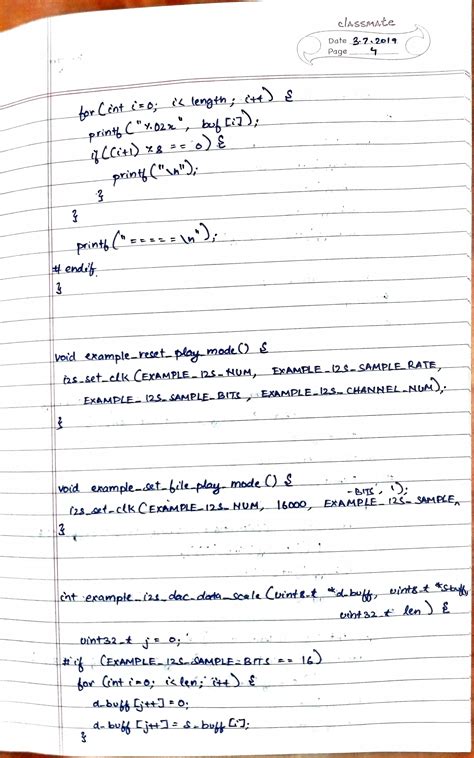 classmate
Date 3.7.2019
Page 4
for (int i=0; i< length; i++) {
printf ("%.02x", buf [i]);
if ((i+1) % 8 == 0) {
printf ("\n");
}
}
printf ("=====\n");
# endif
}
void example_reset_play_mode() {
i2s_set_clk (EXAMPLE_I2S_NUM, EXAMPLE_I2S_SAMPLE_RATE,
EXAMPLE_I2S_SAMPLE_BITS, EXAMPLE_I2S_CHANNEL_NUM);
}
void example_set_file_play_mode () {
i2s_set_clk (EXAMPLE_I2S_NUM, 16000, EXAMPLE_I2S_SAMPLE_BITS, 1);
}
int example_i2s_dac_data_scale (uint8_t *d_buff, uint8_t *s_buff,
uint32_t len) {
uint32_t j = 0;
# if (EXAMPLE_I2S_SAMPLE_BITS == 16)
for (int i=0; i<len; i++) {
d_buff [j++] = 0;
d_buff [j++] = s_buff [i];
}